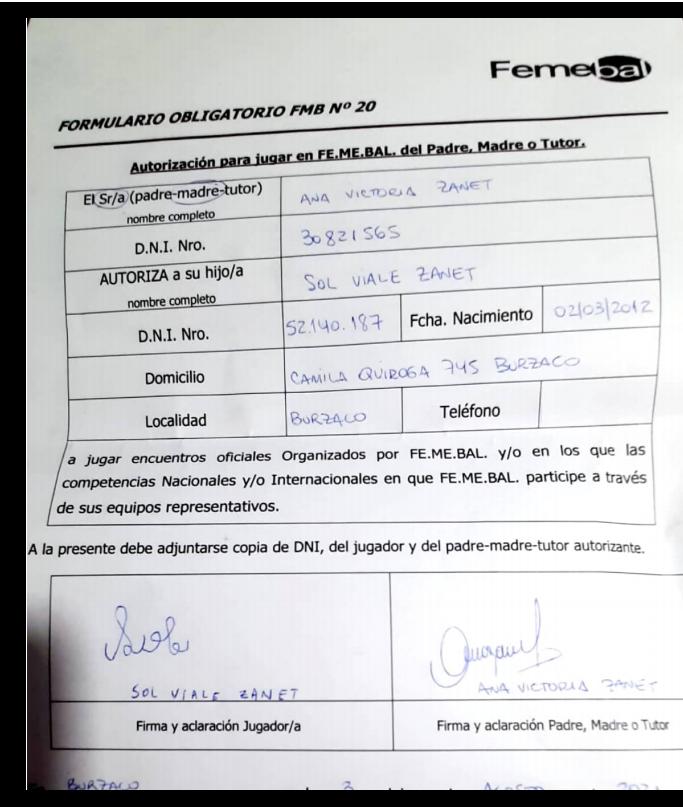 Femebal
FORMULARIO OBLIGATORIO FMB Nº 20
Autorización para jugar en FE.ME.BAL. del Padre, Madre o Tutor.
El Sr/a (padre-madre-tutor) ANA VICTORIA ZANET
nombre completo
D.N.I. Nro. 30821565
AUTORIZA a su hijo/a SOL VIALE ZANET
nombre completo
D.N.I. Nro. 52.140.187 Fcha. Nacimiento 02/03/2012
Domicilio CAMILA QUIROGA 745 BURZACO
Localidad BURZACO Teléfono
a jugar encuentros oficiales Organizados por FE.ME.BAL. y/o en los que las
competencias Nacionales y/o Internacionales en que FE.ME.BAL. participe a través
de sus equipos representativos.
A la presente debe adjuntarse copia de DNI, del jugador y del padre-madre-tutor autorizante.
SOL VIALE ZANET ANA VICTORIA ZANET
Firma y aclaración Jugador/a Firma y aclaración Padre, Madre o Tutor
BURZACO 3 AGOSTO